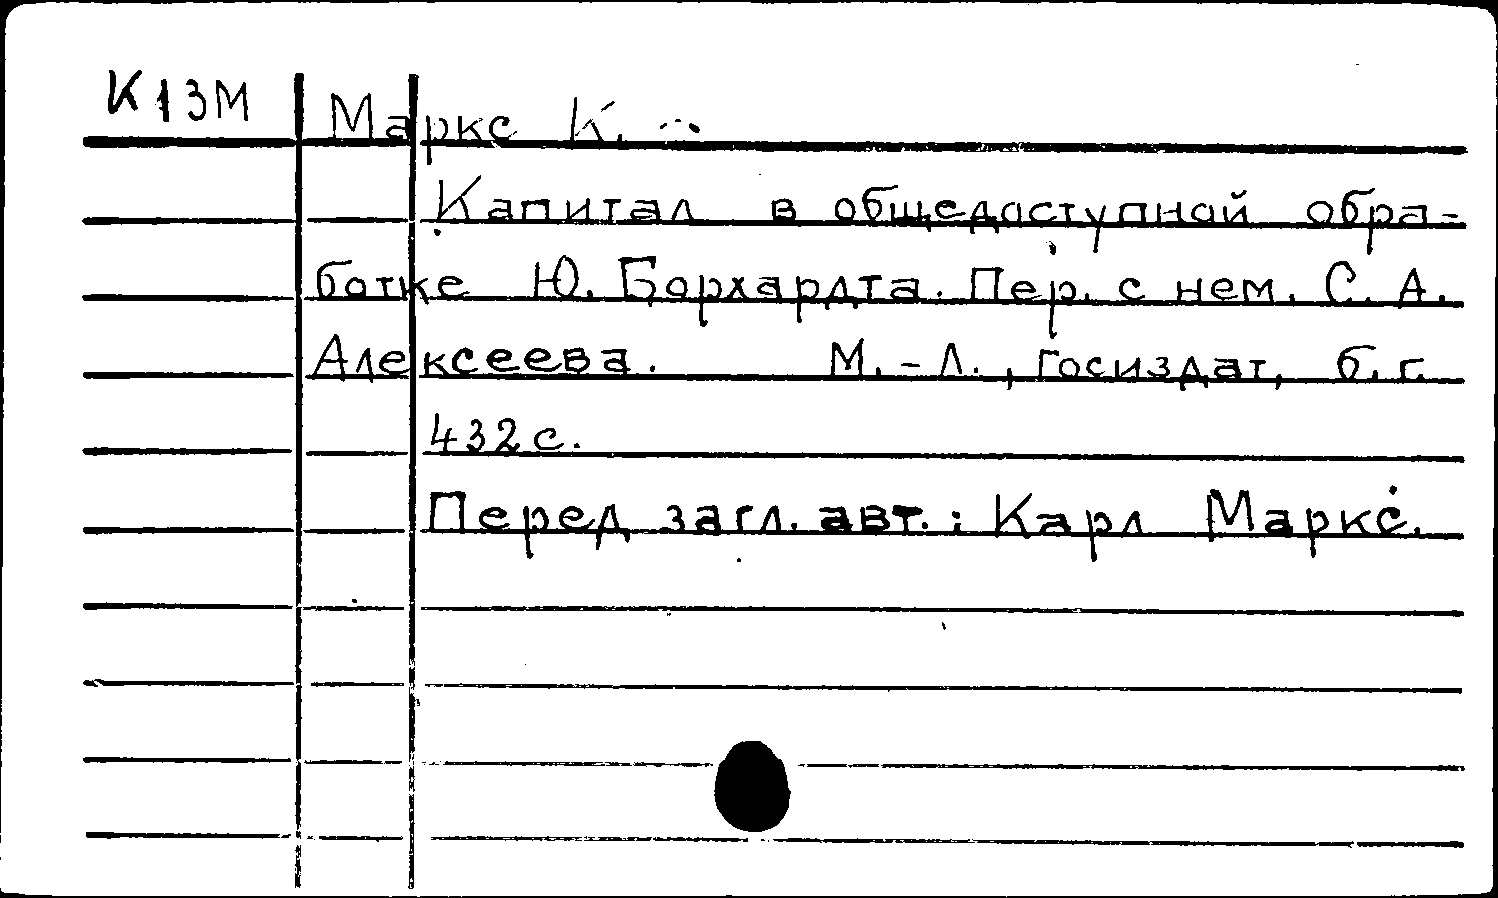 К13М
Маркс К.
Капитал в общедоступной обра-
ботке Ю. Борхардта. Пер. с нем. С. А.
Алексеева. М.-Л., Госиздат, б.г.
432с.
Перед загл. авт.: Карл Маркс.